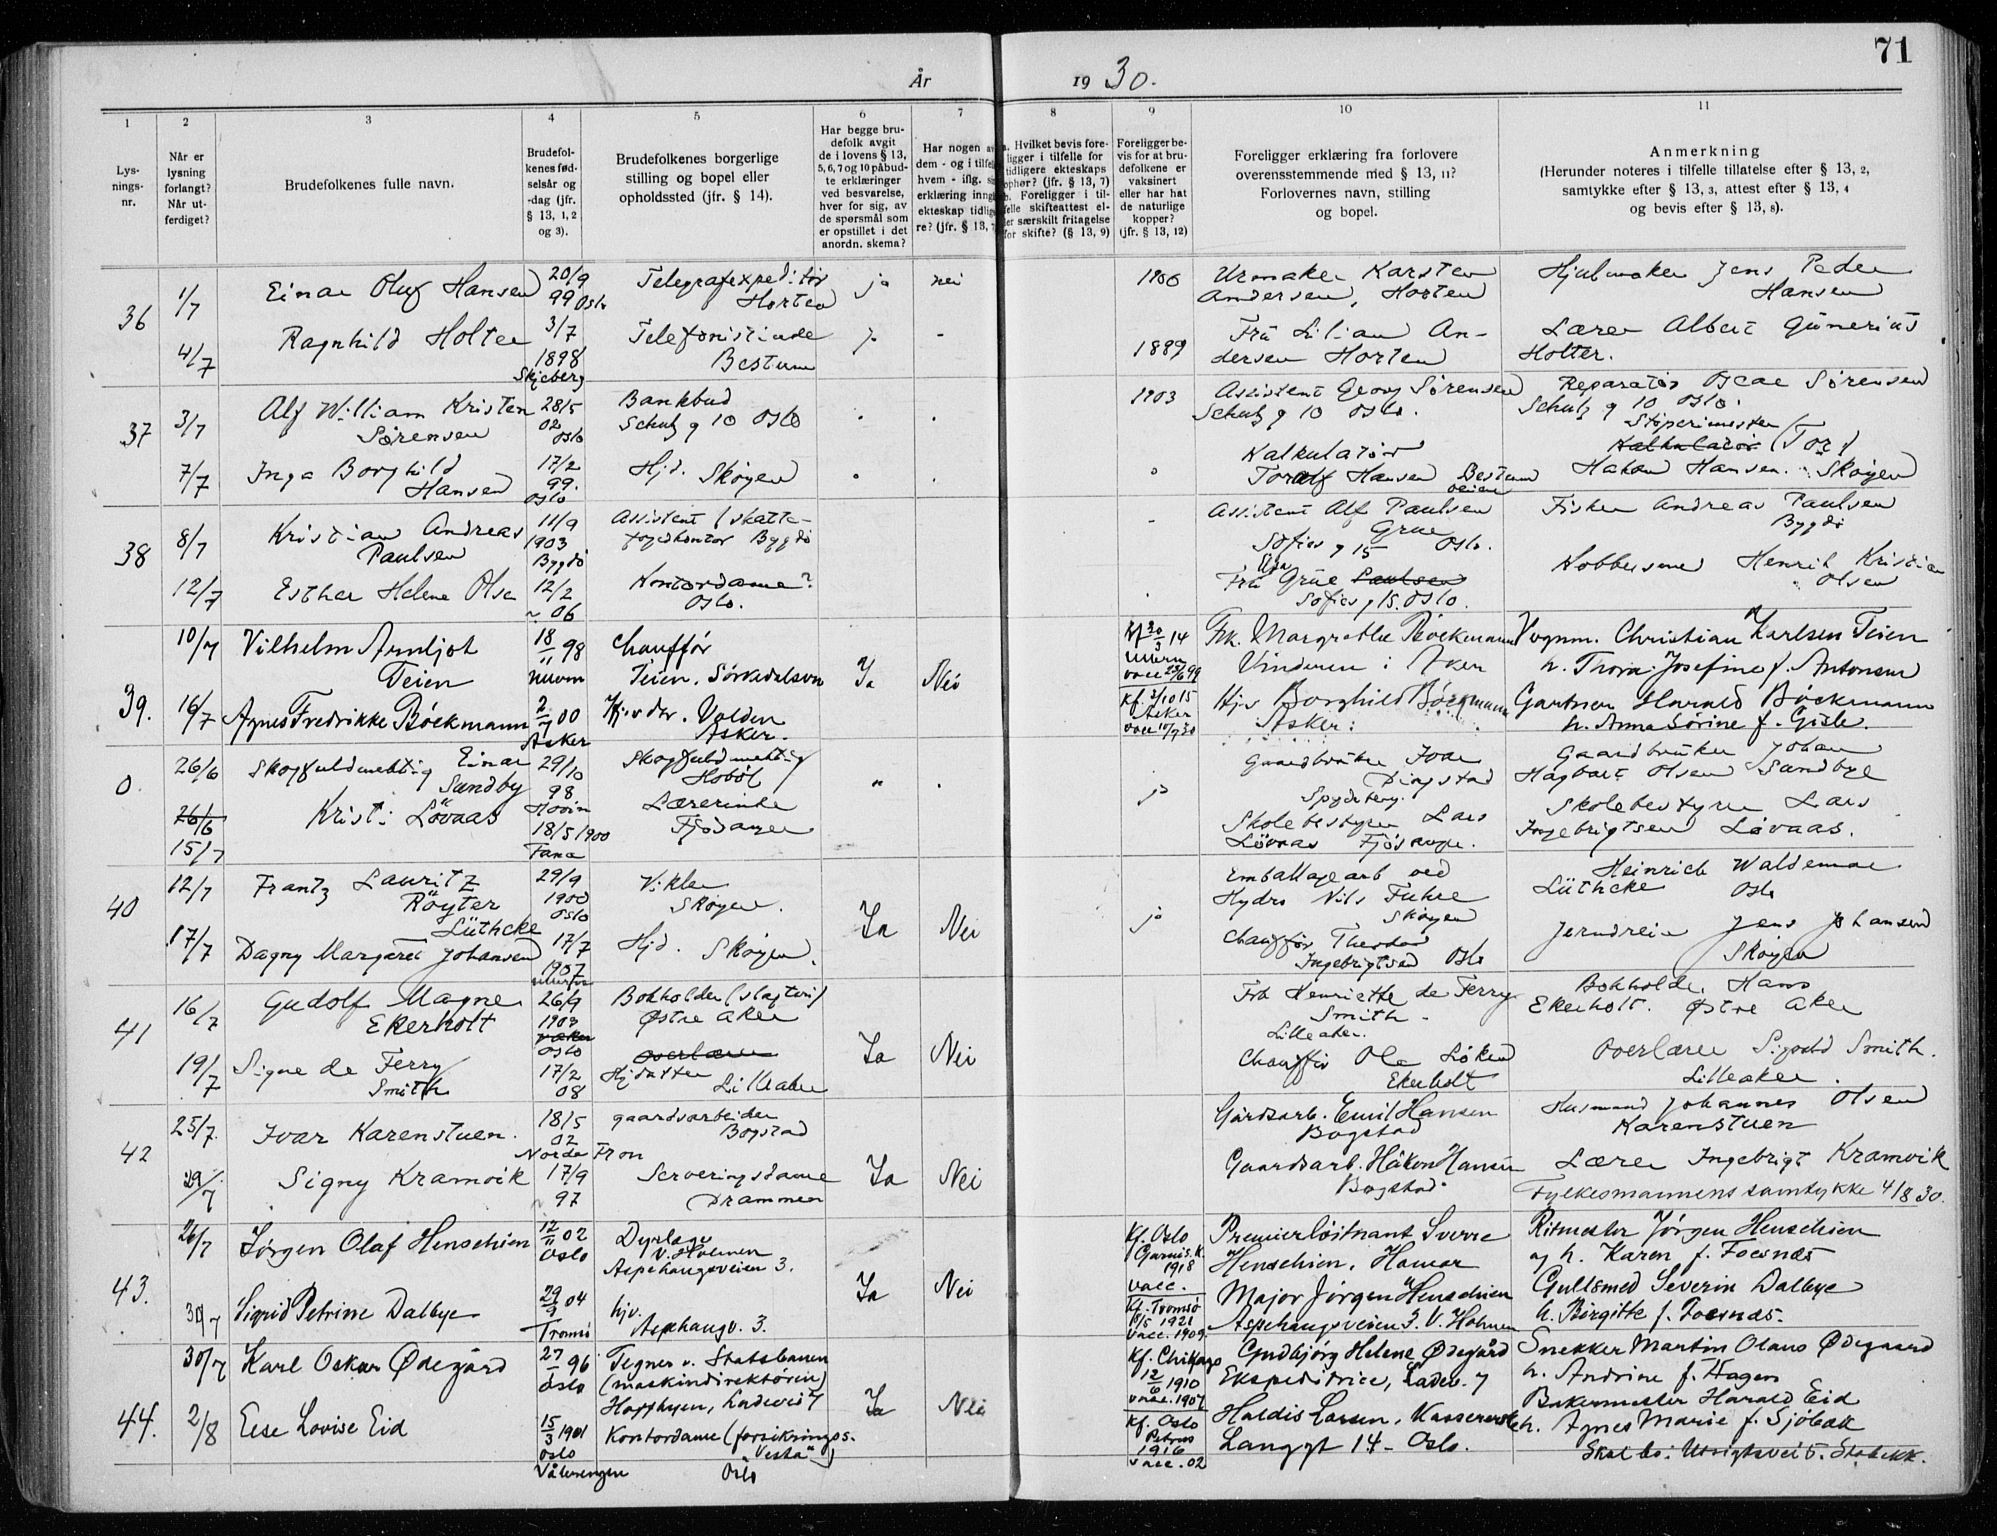 71
År 1930.
1 2 3 4 5 6 7 8 9 10 11
Lys-
nings-
nr.
Når er
lysning
forlangt?
Når ut-
ferdiget?
Brudefolkenes fulle navn.
Brudefol-
kenes fød-
selsår og
-dag (jfr.
§ 13, 1, 2
og 3).
Brudefolkenes borgerlige
stilling og bopel eller
opholdssted (jfr. § 14).
Har begge bru-
defolk avgit
de i lovens § 13,
5, 6, 7 og 10 påbud-
te erklæringer
ved besvarelse,
hver for sig, av
de spørsmål som
er opstillet i det
anordn. skema?
Har nogen av
dem - og i tilfelle
hvem - iflg.
erklæring inngått
ekteskap tidlige-
re? (jfr. § 13, 7
a. Hvilket bevis fore-
ligger i tilfelle for
tidligere ekteskaps
ophør? (jfr. § 13, 7)
b. Foreligger i til-
felle skifteattest el-
ler særskilt fritagelse
for skifte? (§ 13, 9)
Foreligger be-
vis for at bru-
defolkene er
vaksinert
eller har hat
de naturlige
kopper?
(jfr. § 13, 12)
Foreligger erklæring fra forlovere
overensstemmende med § 13, 11?
Forlovernes navn, stilling
og bopel.
Anmerkning
(Herunder noteres i tilfelle tillatelse efter § 13, 2,
samtykke efter § 13, 3, attest efter § 13, 4
og bevis efter § 13, 8).
36
1/7
Einar Oluf Hansen
20/9
99 Oslo
Telegrafexpeditør
Horten
ja nei
1900
Urmaker Karsten
Andersen, Horten
Hjulmaker Jens Peder
Hansen
4/7
Ragnhild Holter
3/7
1898
Skjeberg
Telefonistinde
Bestum
1889
Fru Lilian An-
dersen Horten
Lærer Albert Gunerius
Holter.
37
3/7
Alf William Kristen
Sørensen
28/5
02
Oslo
Bankbud
Schulz g 10 Oslo
1903
Assistent Georg Sørensen
Schulz g 10 Oslo.
Reparatør Oscar Sørensen
Schulz g 10 Oslo.
7/7
Inga Borghild
Hansen
17/2
99.
Oslo
Hjd. Skøyen
Kalkulatør
Toralf Hansen Bestum
veien
Støperimester
Kalkulatør (Tor)
Hakon Hansen. Skøyen
38
8/7
Kristian Andreas
Paulsen
11/9
1903
Bygdø
Assistent (skatte-
fogedkontor Bygdø
Assistent Alf Paulsen
Grue
Sofies g 15 Oslo.
Fisker Andreas Paulsen
Bygdø
12/7
Esther Helene Olsen
12/2
06
Kontordame?
Oslo.
Fru Grue Paulsen
Sofies g 15. Oslo.
Kobbersmed Henrik Kristian
Olsen
39.
10/7
Vilhelm Arnljot
Teien
18
11 98
Ullern
Chauffør
Teien, Sørkedalsvn
Ja Nei
Kf 30/3 14
Ullern
Frk. Margrethe Bøckmann
Vinderen i Aker
Vognm. Christian Karlsen Teien
h. Thora Josefine f. Antonsen
16/7
Agnes Fredrikke Bøckmann
2
7 00
Asker
Hj.v dtr. Valden
Asker.
Kf. 3/10 15
Asker
vacc 10/7 30
Hjv Borghild Bøckmann
Asker:
Gartner Harald Bøckmann
h. Anna Sørine f. Gisle.
0.
26/6
Skogfuldmektig Einar
Sandby
29/10
98
Skogfuldmektig
Hobøl
ja
Gaardbruker Ivar
Dingstad
Spydeberg.
Gaardbruker Johan
Hagbart Olsen Sandbye
26/6
15/7
Kristi Løvaas
18/5 1900
Fana
Lærerinde
Fjøsanger
Skolebestyrer Lars
Løvaas Fjøsanger.
Skolebestyrer Lars
Ingebrigtsen Løvaas.
40
12/7
Frantz Lauritz
Röyter
Lüthcke
29/9
1900
Oslo
Vikler
Skøyen.
Ja Nei
ja
Emballagearb ved
Hydro Nils Fuhre
Skøyen
Heinrich Waldemar
Lüthcke Oslo
17/7
Dagny Margaret Johansen
17/7
1907
Hjd. Skøyen.
Chauffør Theodor
Ingebrigtsen Oslo
Jerndreier Jens Johansen
Skøyen
41
16/7
Gudolf Magne
Ekerholt
26/9
Oslo
Bokholder (slagteri)
Østre Aker
Ja Nei
Frk Henriette de Ferry
Smith.
Lilleaker.
Bokholder Hans
Ekerholt. Østre Aker
19/7
Signe de Ferry
Smith
17/2
08
Overlærer
Hjdatter
Lilleaker
Chauffør Ole Løken
Ekerholt
Overlærer Sigvald Smith.
Lilleaker.
42
25/7.
Ivar Karenstuen.
18/5
02
Nordre Fron
gaardsarbeider
Bogstad
Ja Nei
Gårdsarb. Emil Hansen
Bogstad
Husmand Johannes Olsen
Karenstuen
29/7
Signy Kramvik
17/9
97
Serveringsdame
Drammen
Gaardsarb. Håkon Hansen
Bogstad.
Lærer Ingebrigt Kramvik
Fylkesmannens samtykke 4/8 30.
43.
26/7
Jørgen Olaf Henschien
12
11 02
Oslo
Dyrlæge
V. Holmen
Aspehaugveien 3.
Ja Nei
Kf. Oslo
Garnis.k.
1918
vacc.
Premierløitnant Sverre
Henschien, Hamar
Ritmester Jørgen Henschien
og h. Karen f. Foesnæs
30/7
Sigrid Petrine Dalbye
29
9 04
Tromsø
hjv.
Aspehaugv. 3.
Kf. Tromsø
1921
vacc. 1909.
Major Jørgen Henschien
Aspehaugsveien 3. V. Holmen
Gullsmed Severin Dalbye
h. Birgitte f. Foesnæs.
44.
30/7
Karl Oskar Ødegård
27
1 96
Oslo
Tegner v. Statsbanen
(maskindirektøren)
Ja Nei
Kf. Chikago
12
6 1910
vacc. 1907
Gudbjørg Helene Ødegård
Ekspeditrice, Ladev. 7
Snekker Martin Olaus Ødegaard
h. Andrine f. Hagen
2/8
Else Lovise Eid
15
3 1901
Oslo
Vålerengen
Kontordame (forsikrings.
"Vesta")
Oslo
Kf. Oslo
Petrus
1916
vacc. 02
Haldis Larsen, Kassererske
Langgt 14 - Oslo.
Bakermester Harald Eid
h. Agnes Marie f. Sjøbæk
Skal bo: Utsigtsvei 5. Stabekk.